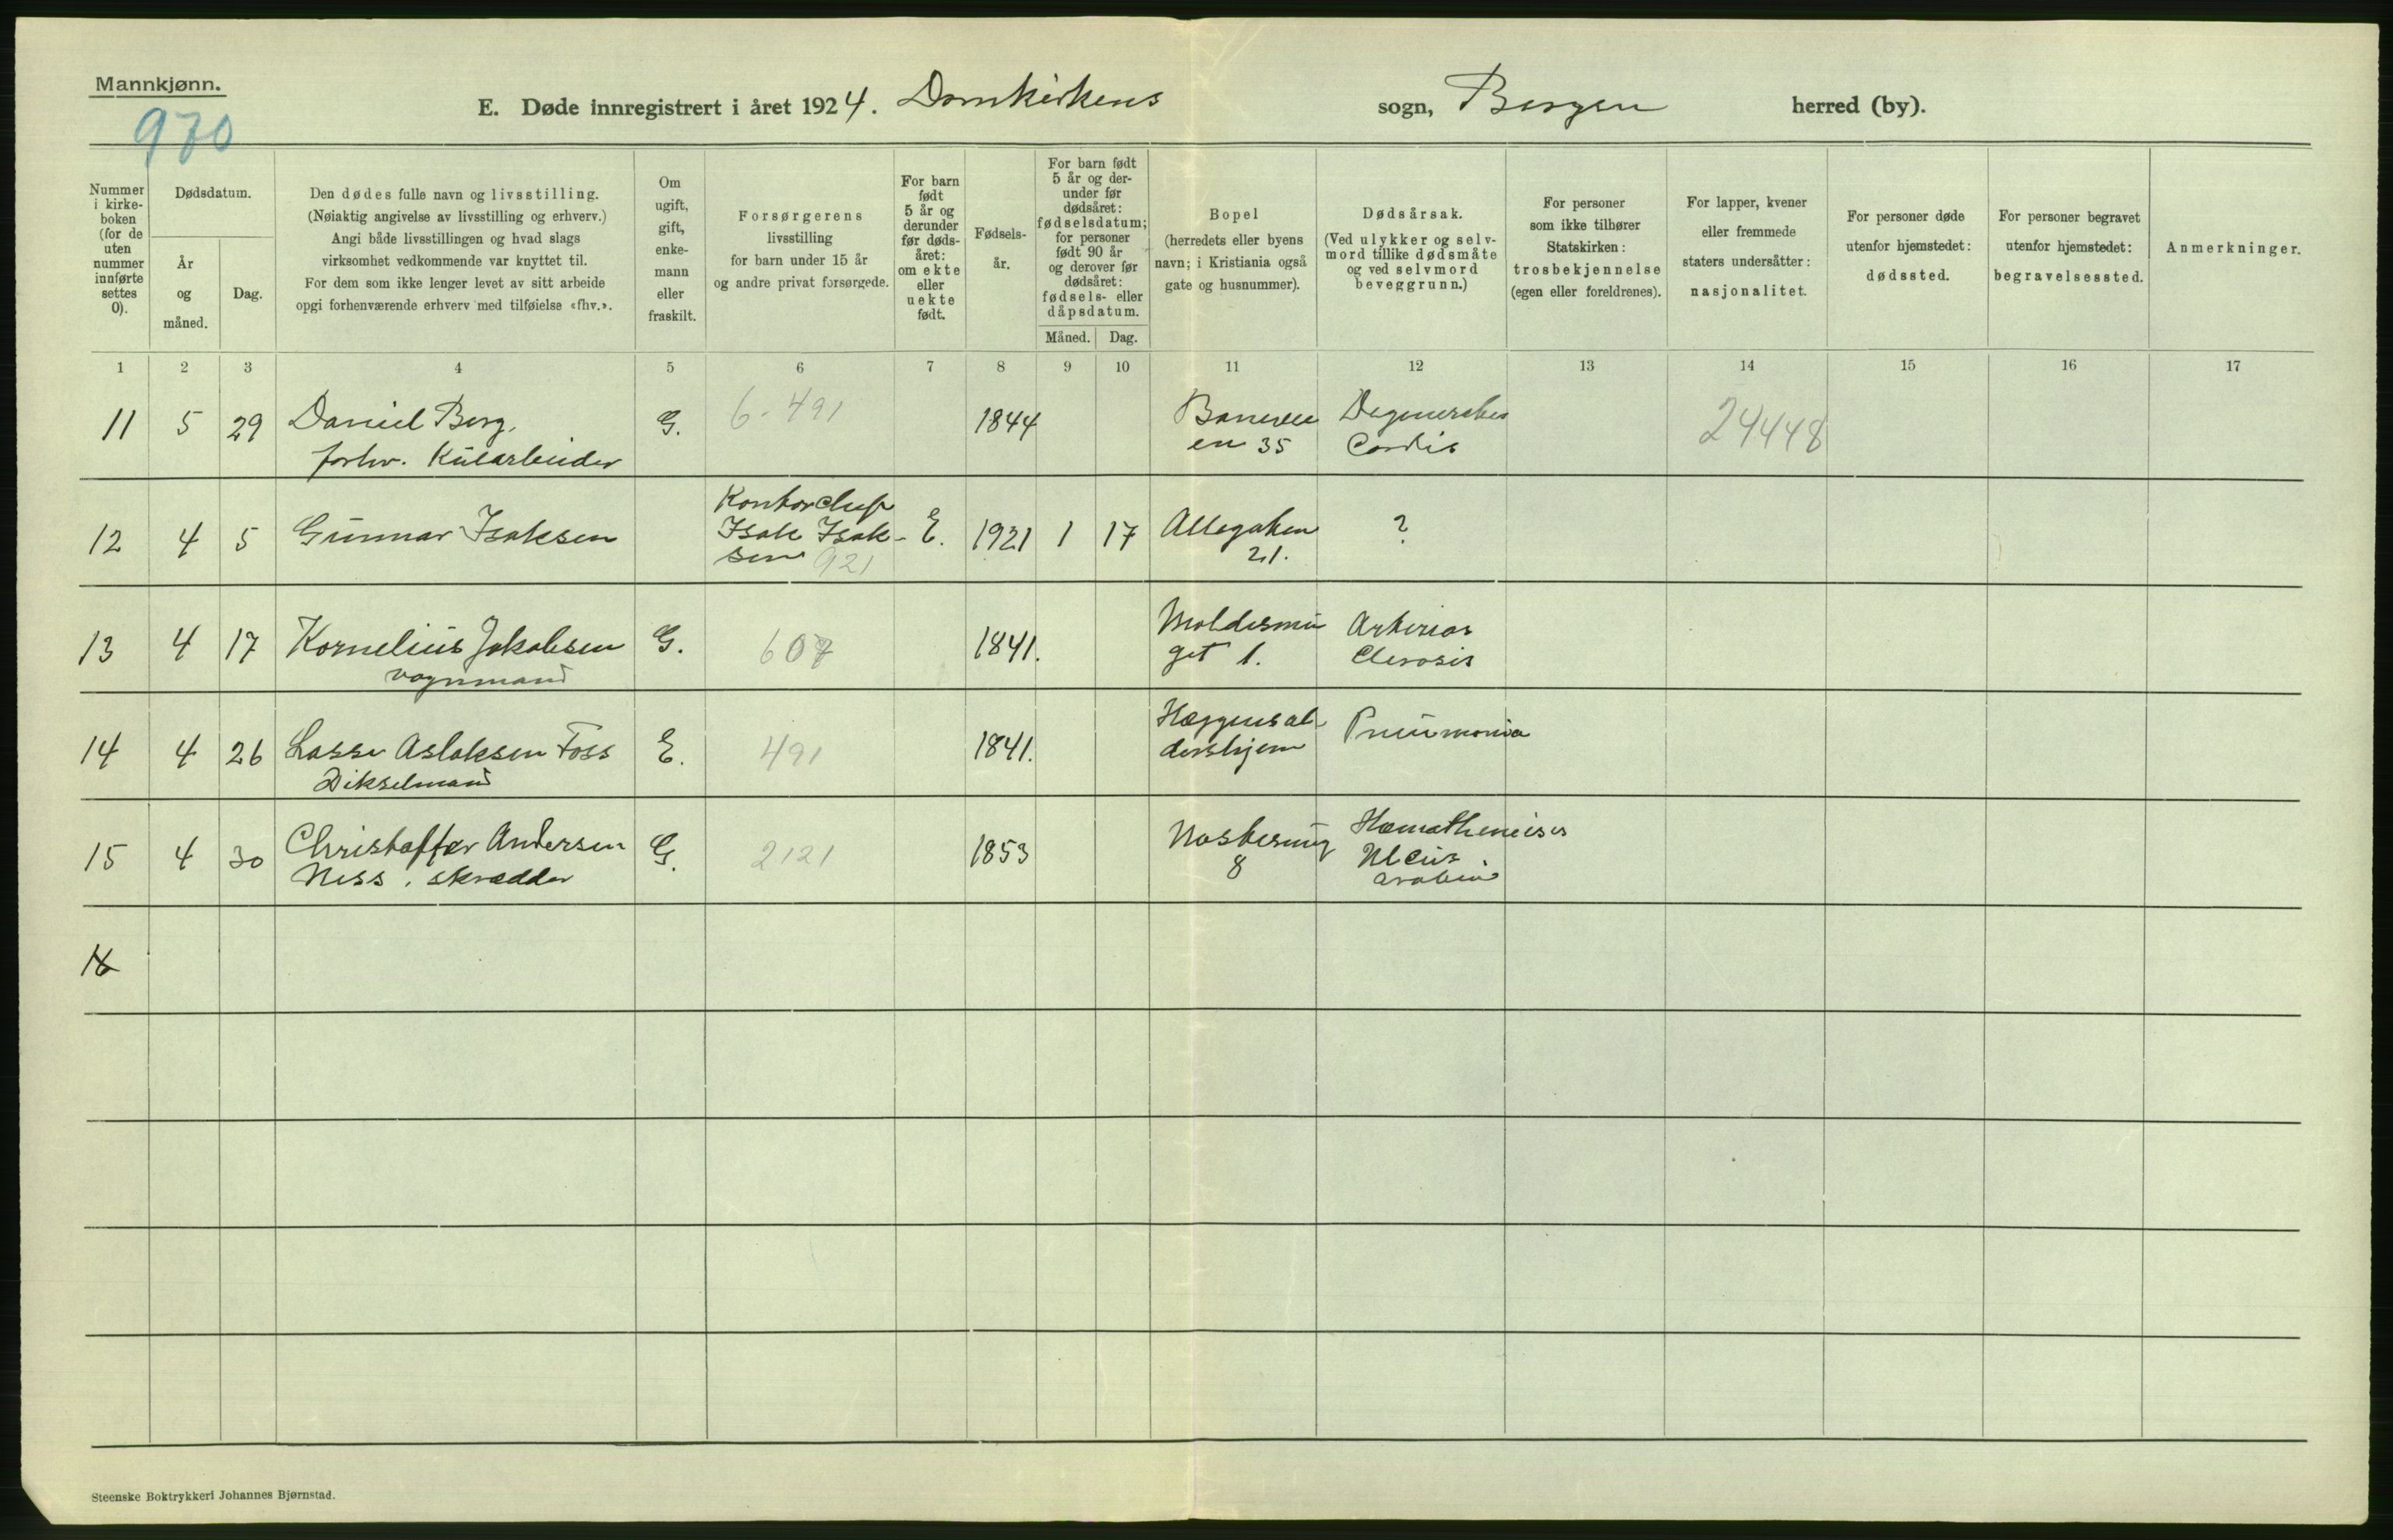 Mannkjønn.
970
E. Døde innregistrert i året 1924. Domkirkens sogn, Bergen herred (by).
Nummer i kirke- boken (for de uten nummer innførte settes 0).
Dødsdatum.
År og måned.
Dag.
Den dødes fulle navn og livsstilling.
(Nøiaktig angivelse av livsstilling og erhverv.)
Angi både livsstillingen og hvad slags
virksomhet vedkommende var knyttet til.
For dem som ikke lenger levet av sitt arbeide
opgi forhenværende erhverv med tilføielse «fhv.».
Om ugift, gift, enke- mann eller fraskilt.
Forsørgerens
livsstilling
for barn under 15 år
og andre privat forsørgede.
For barn født 5 år og derunder før døds- året: om ekte eller uekte født.
Fødsels- år.
For barn født 5 år og der- under før dødsåret: fødselsdatum; for personer født 90 år og derover før dødsåret: fødsels- eller dåpsdatum.
Måned. Dag.
Bopel
(herredets eller byens
navn; i Kristiania også
gate og husnummer).
Dødsårsak.
(Ved ulykker og selv-
mord tillike dødsmåte
og ved selvmord
beveggrunn.)
For personer
som ikke tilhører
Statskirken:
trosbekjennelse
(egen eller foreldrenes).
For lapper, kvener
eller fremmede
staters undersåtter:
nasjonalitet.
For personer døde
utenfor hjemstedet:
dødssted.
For personer begravet
utenfor hjemstedet:
begravelsessted.
Anmerkninger.
1 2 3 4 5 6 7 8 9 10 11 12 13 14 15 16 17
11 5 29 Daniel Berg, G. 6-491 1844 Banevei Degeneratio 24448
forhv. Kularbeider en 35 Cordis
Kontorchef
12 4 5 Gunnar Isaksen Isak Isak- E. 1921 1 17 Allegaten ?
sen 921 21.
13 4 17 Kornelius Jakobsen G. 607 1841. Moldesmu Arterios
vognmand get 1. Clerosis
14 4 26 Lasse Aslaksen Foss E. 491 1841. Hæggens al Pneumonia
Dikselmand dershjem
15 4 30 Christoffer Andersen G. 2121 1853 Nostesmug Hæmathemeisis
Ness, skrædder 8 Ulcus
16
Steenske Boktrykkeri Johannes Bjørnstad.